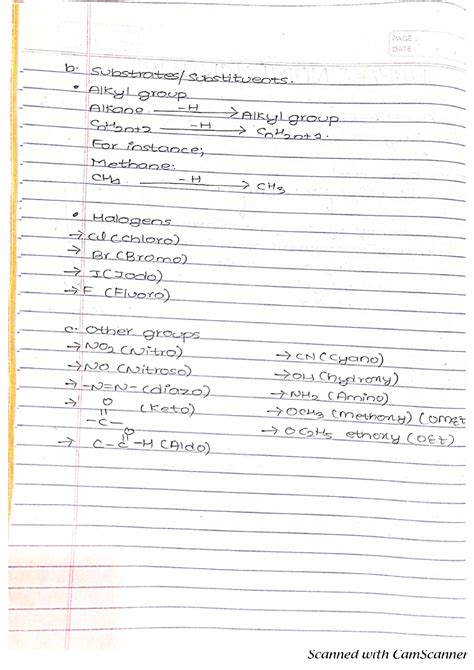 PAGE :
DATE
b. Substrates/substituents.
• Alkyl group
Alkane -H → Alkyl group
CnH2n+2 -H → CnH2n+1.
For instance;
Methane:
CH4 -H → CH3
• Halogens
→ Cl (Chloro)
→ Br (Bromo)
→ I (Iodo)
→ F (Fluoro)
c. Other groups
→ NO2 (Nitro)
→ NO (Nitroso)
→ -N=N- (diazo)
→ O (Keto)
-C-
→ C-C-H (Aldo)
O
→ CN (Cyano)
→ OH (hydroxy)
→ NH2 (Amino)
→ OCH3 (methoxy) (OMet
→ OC2H5 ethoxy (OEt)
Scanned with CamScanner